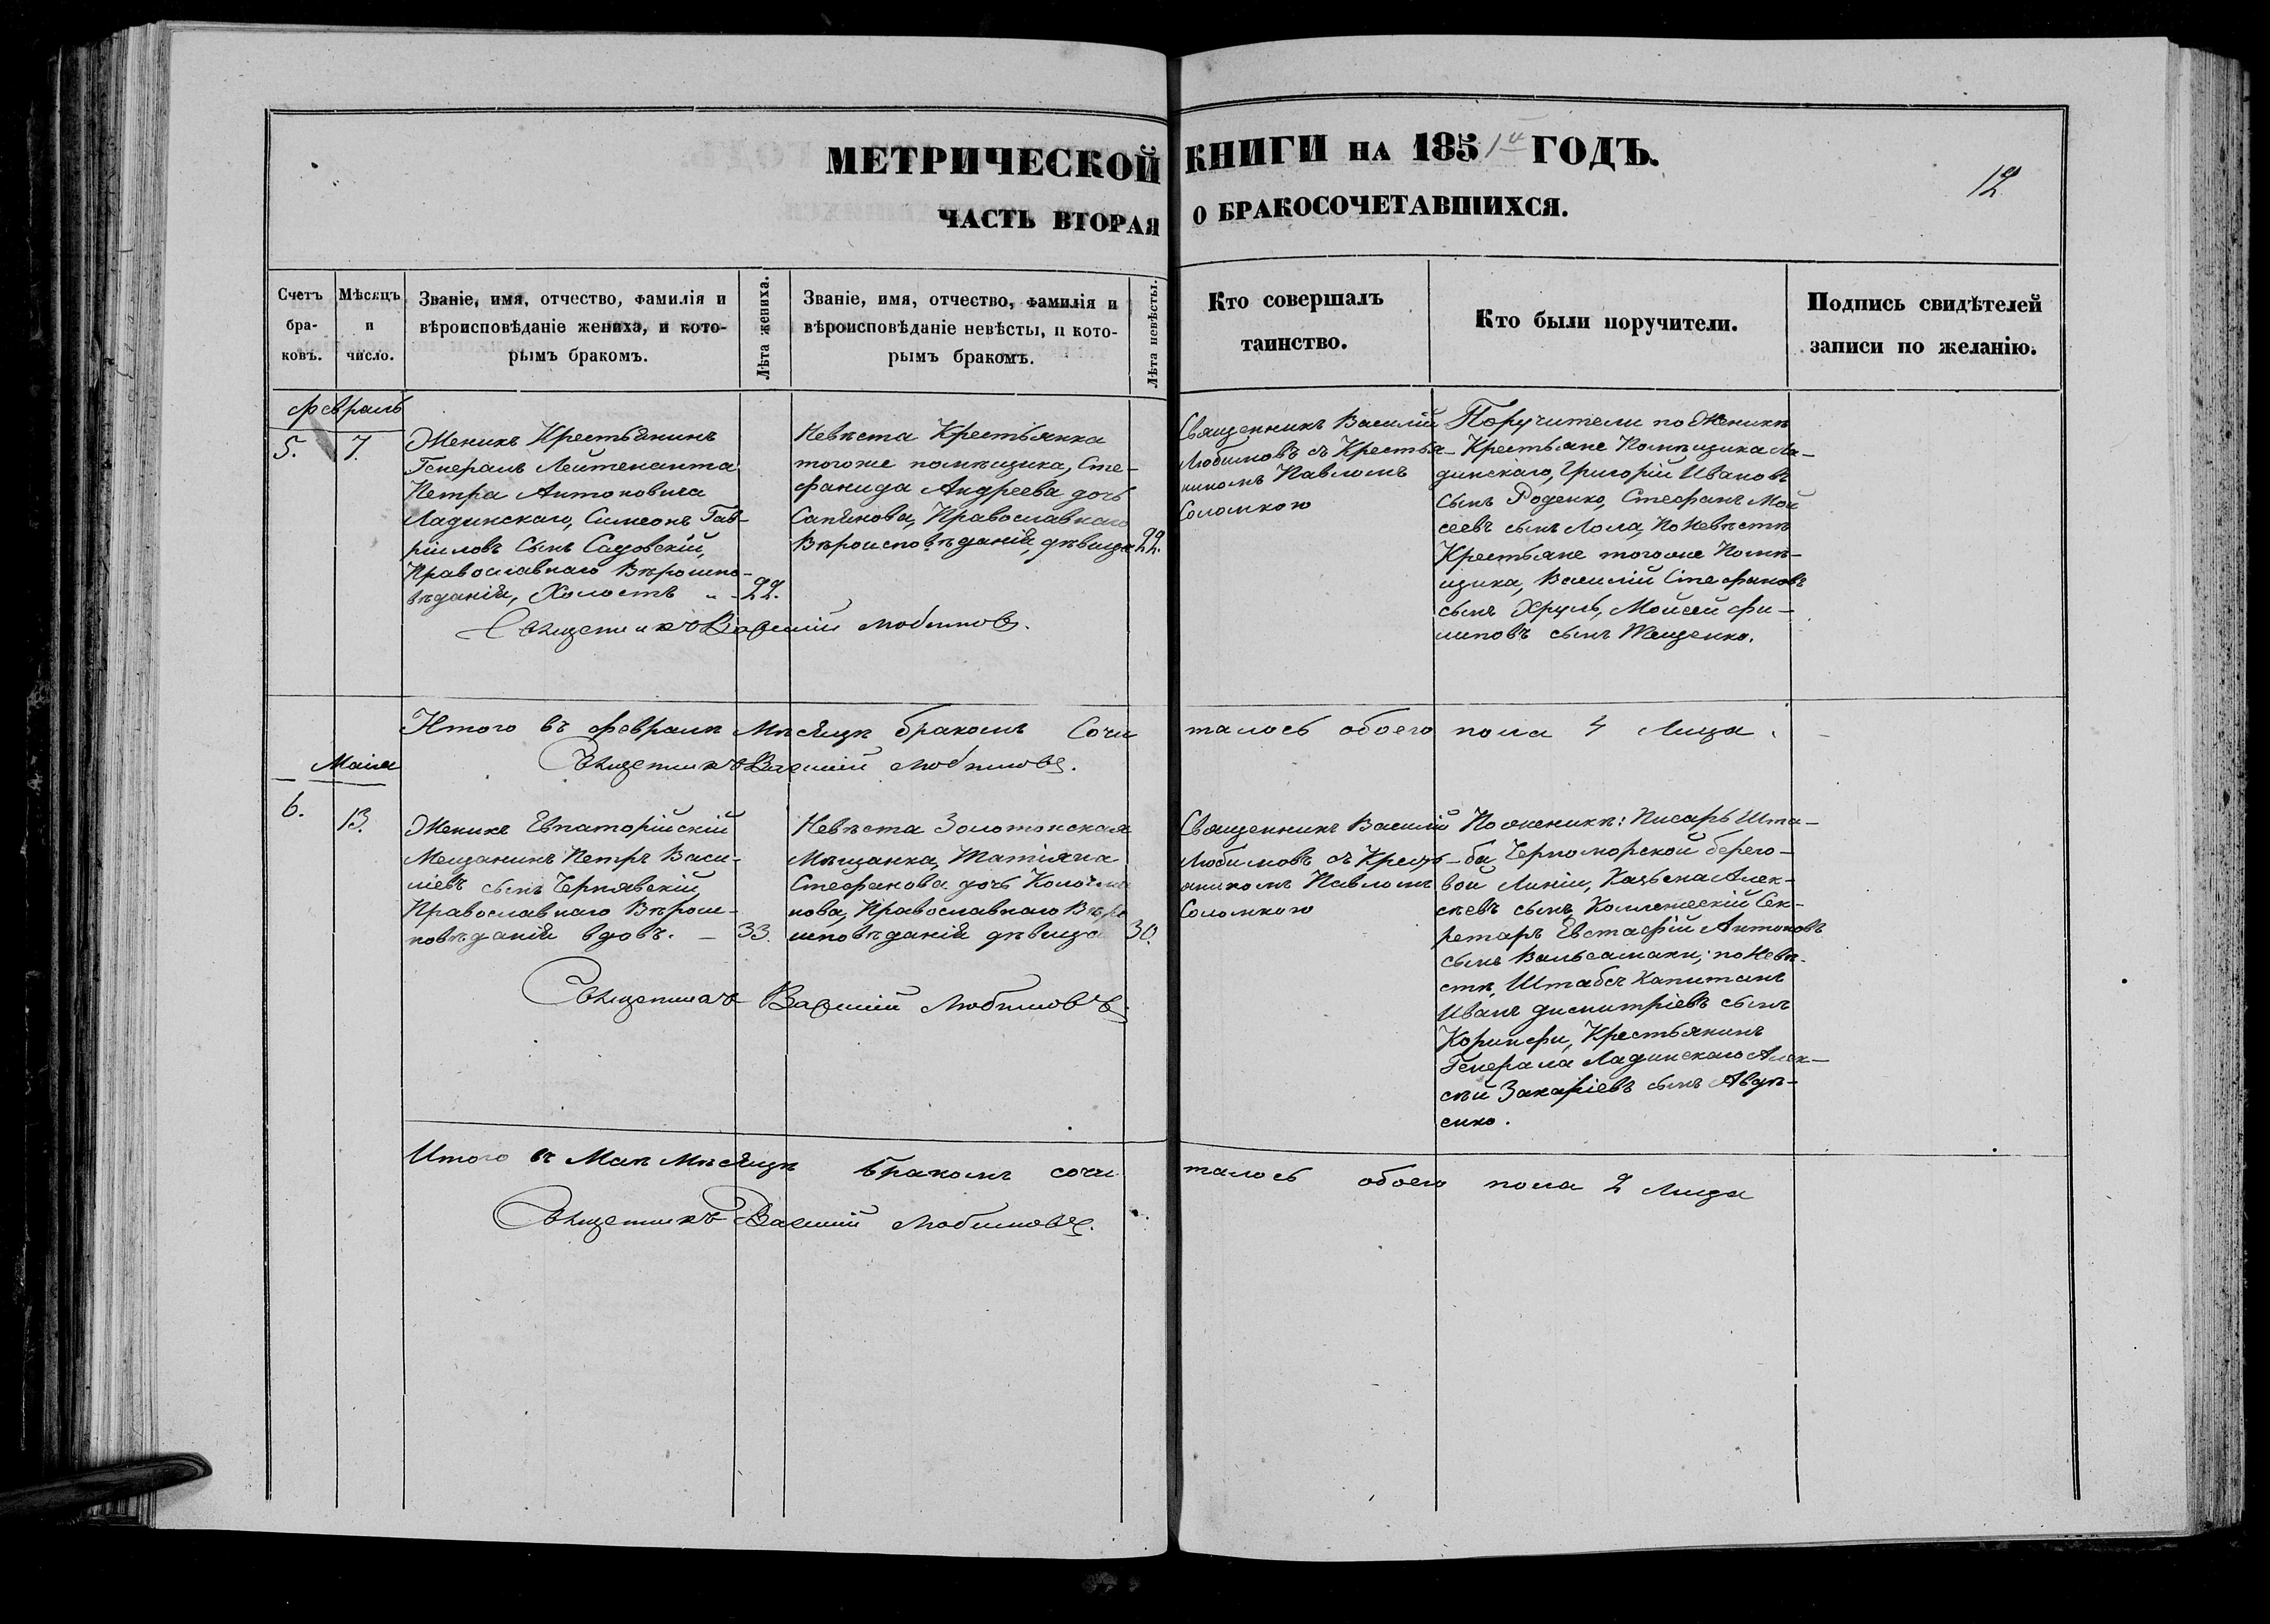 МЕТРИЧЕСКОЙ КНИГИ НА 1851й ГОДЪ.
12
ЧАСТЬ ВТОРАЯ О БРАКОСОЧЕТАВШИХСЯ.
Счетъ бра-ковъ.
Мѣсяцъ и число.
Званіе, имя, отчество, фамилія и
вѣроисповѣданіе жениха, и кото-
рымъ бракомъ.
Лѣта жениха.
Званіе, имя, отчество, фамилія и
вѣроисповѣданіе невѣсты, и кото-
рымъ бракомъ.
Лѣта невѣсты.
Кто совершалъ
таинство.
Кто были поручители.
Подпись свидѣтелей
записи по желанію.
Февраль
5. 7.
Женихъ Крестьянинъ
Генералъ Лейтенанта
Петра Антоновича
Ладинскаго, Симеонъ Гав-
ріиловъ Сынъ Садовскій,
Православнаго Вѣроиспо-
вѣданія, Холостъ
22.
Невѣста Крестьянка
тогоже помѣщика, Сте-
фанида Андреева дочь
Православнаго
Вѣроисповѣданія, дѣвица
22.
Священникъ Василій
Любимовъ съ Крестья-
ниномъ Павломъ
Соломкою
Поручители по Женихѣ
Крестьяне Помѣщика Ла-
динскаго, Григорій Ивановъ
Сынъ Роденко, Стефанъ Мои
сеевъ сынъ Лола, По Невѣстѣ
Крестьяне тогоже Помѣ-
щика, Василій Стефановъ
сынъ Хруль, Моисей Фи-
липовъ сынъ Тищенко.
Священникъ Василій Любимовъ.
Итого въ Февралѣ Мѣсяцѣ бракомъ Сочи
талось обоего пола 4 Лица.
Священникъ Василій Любимовъ.
Маія
6. 13.
Женихъ Евпаторійскій
Мещанинъ Петръ Васи-
ліевъ сынъ Чернявскій,
Православнаго Вѣроис-
повѣданія вдовъ.
33.
Невѣста Золотонская
Мѣщанка, Татіяна
Стефанова дочь
Православнаго Вѣро
исповѣданія дѣвица
30.
Священникъ Василій
Любимовъ съ Кресть-
яниномъ Павломъ
Соломкою
По женихѣ: Писарь Шта-
ба Черноморской берего-
вой Линіи, Алек-
сѣевъ сынъ, Коллежскій Сек-
ретарь Евстафій Антоновъ
сынъ Вальсамаки; по Невѣ-
стѣ, Штабсъ Капитанъ
Иванъ Димитріевъ сынъ
Коринфи, Крестьянинъ
Генерала Ладинскаго Алек-
сѣй Захаріевъ сынъ Авдѣ-
енко.
Священникъ Василій Любимовъ
Итого въ Маѣ Мѣсяцѣ Бракомъ сочи
талось обоего пола 2 лица
Священникъ Василій Любимовъ.